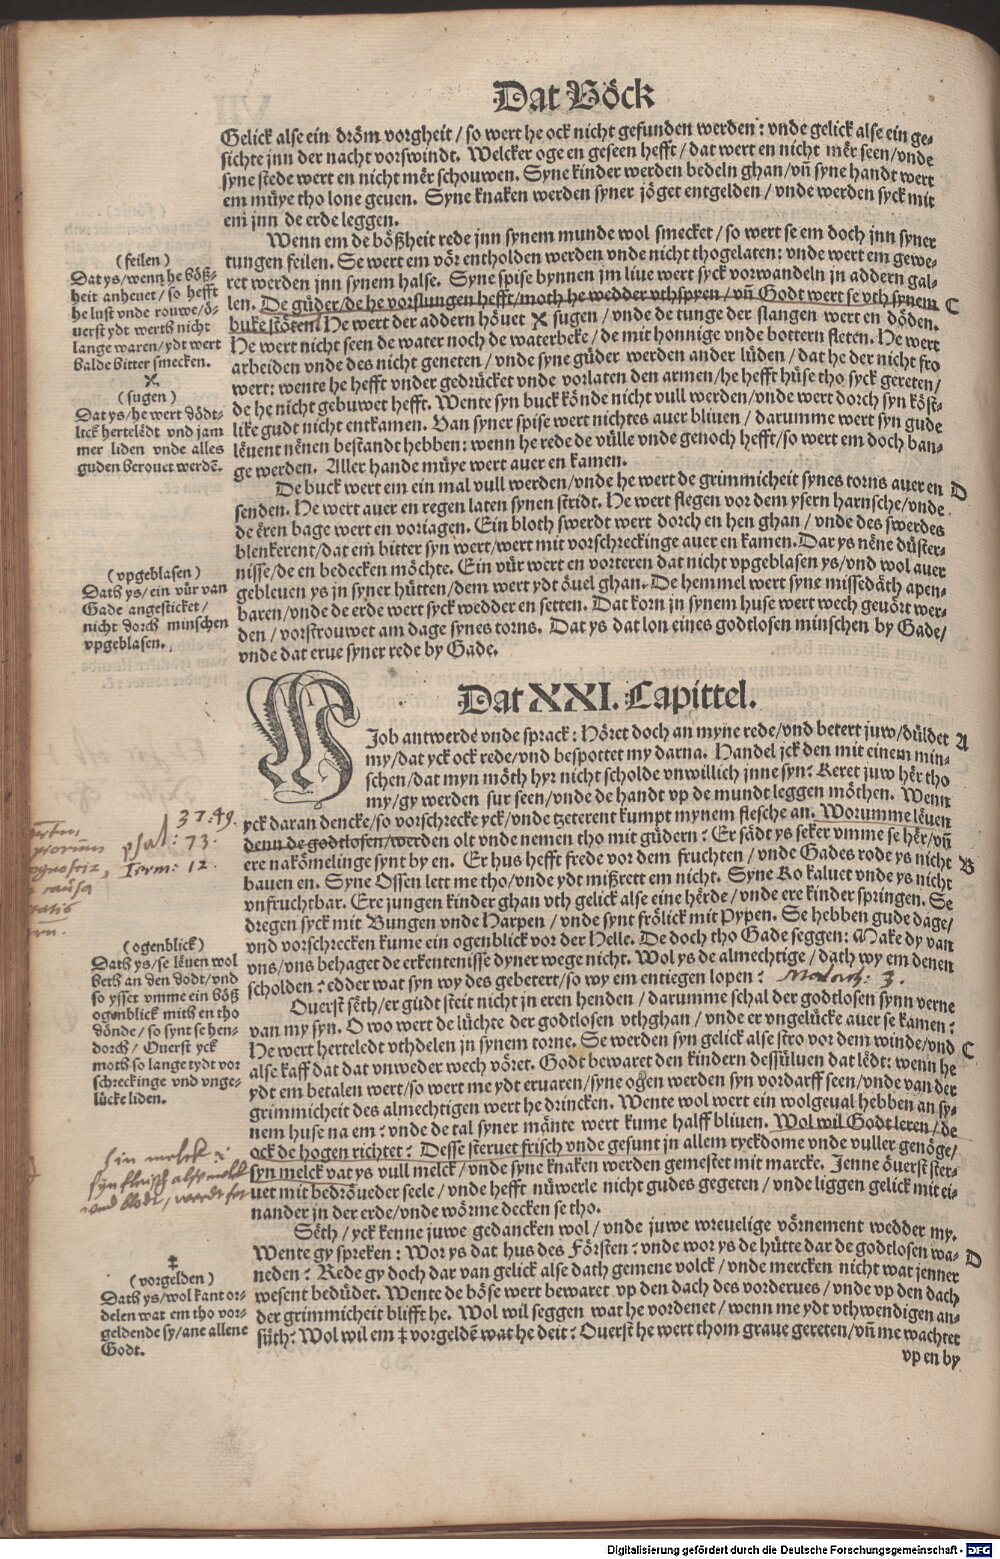 Dat Böck
Gelick alse ein dröm vorgheit / so wert he ock nicht gefunden werden : vnde gelick alse ein ge-
sichte jnn der nacht vorswindt. Welcker oge en geseen hefft / dat wert en nicht mër seen/vnde
syne stede wert en nicht mër schouwen. Syne kinder werden bedeln ghan/vñ syne handt wert
em müye tho lone geuen. Syne knaken werden syner jöget entgelden / vnde werden syck mit
em jnn de erde leggen.
Wenn em de bößheit rede jnn synem munde wol smecket / so wert se em doch jnn syner
tungen feilen. Se wert em vör entholden werden vnde nicht thogelaten : vnde wert em gewe-
ret werden jnn synem halse. Syne spise bynnen jm liue wert syck vorwandeln jn addern gal-
len. De güder/de he vorslungen hefft/moth he wedder vthspyen / vñ Godt wert se vth synem C
buke stöten. He wert der addern höuet ✕ sugen / vnde de tunge der slangen wert en döden.
He wert nicht seen de water noch de waterbeke / de mit honnige vnde bottern fleten. He wert
arbeiden vnde des nicht geneten / vnde syne güder werden ander lüden / dat he der nicht fro
wert: wente he hefft vnder gedrücket vnde vorlaten den armen/he hefft hüse tho syck gereten/
de he nicht gebuwet hefft. Wente syn buck könde nicht vull werden/vnde wert dorch syn köst-
like gudt nicht entkamen. Van syner spise wert nichtes auer bliuen / darumme wert syn gude
lëuent nënen bestandt hebben: wenn he rede de vülle vnde genoch hefft/so wert em doch ban-
ge werden. Aller hande müye wert auer en kamen.
De buck wert em ein mal vull werden/vnde he wert de grimmicheit synes torns auer en D
senden. He wert auer en regen laten synen stridt. He wert flegen vor dem ysern harnsche/vnde
de ëren bage wert en voriagen. Ein bloth swerdt wert dorch en hen ghan / vnde des swerdes
blenkerent/dat em bitter syn wert/wert mit vorschreckinge auer en kamen. Dar ys nëne düster-
nisse/de en bedecken möchte. Ein vür wert en vorteren dat nicht vpgeblasen ys/vnd wol auer
gebleuen ys jn syner hütten/dem wert ydt öuel ghan. De hemmel wert syne missedäth apen-
baren/vnde de erde wert syck wedder en setten. Dat korn jn synem huse wert wech geuört wer-
den / vorstrouwet am dage synes torns. Dat ys dat lon eines godtlosen minschen by Gade/
vnde dat erue syner rede by Gade.
(feilen)
Dat ys/wenn he böß-
heit anheuet/so hefft
he lust vnde rouwe/ö-
uerst ydt werth nicht
lange waren/ydt wert
balde bitter smecken.
✕
(sugen)
Dat ys/he wert dödt-
lick hertelëdt vnd jam
mer liden vnde alles
guden berouet werdē.
(vpgeblasen)
Dath ys/ein vür van
Gade angesticket/
nicht dorch minschen
vpgeblasen.
Dat XXI. Capittel.
Job antwerde vnde sprack : Höret doch an myne rede/vnd betert juw/düldet A
my/dat yck ock rede/vnd bespottet my darna. Handel jck den mit einem min-
schen/dat myn möth hyr nicht scholde vnwillich jnne syn? Keret juw hër tho
my/gy werden sur seen/vnde de handt vp de mundt leggen möthen. Wenn
yck daran dencke/so vorschrecke yck/vnde tzeterent kumpt mynem flesche an. Worumme lëuen
denn de godtlosen/werden olt vnde nemen tho mit güdern? Er sädt ys seker vmme se hër/vñ
ere nakömelinge synt by en. Er hus hefft frede vor dem fruchten / vnde Gades rode ys nicht B
bauen en. Syne Ossen lett me tho/vnde ydt mißrett em nicht. Syne Ko kaluet vnde ys nicht
vnfruchtbar. Ere jungen kinder ghan vth gelick alse eine hërde/vnde ere kinder springen. Se
dregen syck mit Bungen vnde Harpen / vnde synt frölick mit Pypen. Se hebben gude dage/
vnd vorschrecken kume ein ogenblick vor der Helle. De doch tho Gade seggen: Make dy van
vns/vns behaget de erkentenisse dyner wege nicht. Wol ys de almechtige / dath wy em denen
scholden? edder wat syn wy des gebetert/so wy em entiegen lopen? Malach: 3.
Ouerst sëth/er güdt steit nicht jn eren henden / darumme schal der godtlosen synn verne
van my syn. O wo wert de lüchte der godtlosen vthghan / vnde er vngelücke auer se kamen?
He wert herteledt vthdelen jn synem torne. Se werden syn gelick alse stro vor dem winde/vnd C
alse kaff dat dat vnweder wech vöret. Godt bewaret den kindern dessüluen dat lëdt: wenn he
ydt em betalen wert/so wert me ydt ervaren/syne ogen werden syn vordarff seen/vnde van der
grimmicheit des almechtigen wert he drincken. Wente wol wert ein wolgeual hebben an sy-
nem huse na em? vnde de tal syner mänte wert kume halff bliuen. Wol wil Godt leren / de
ock de hogen richtet? Desse steruet frisch vnde gesunt jn allem ryckdome vnde vuller genöge/
syn melck vat ys vull melck / vnde syne knaken werden gemestet mit marcke. Jenne öuerst ster-
uet mit bedröueder seele / vnde hefft nüwerle nicht gudes gegeten / vnde liggen gelick mit ei-
nander jn der erde/vnde wörme decken se tho.
Sëth / yck kenne juwe gedancken wol / vnde juwe wreuelige vörnement wedder my.
Wente gy spreken : Wor ys dat hus des Försten? vnde wor ys de hütte dar de godtlosen wa- D
neden? Rede gy doch dar van gelick alse dath gemene volck / vnde mercken nicht wat jenner
wesent bedüdet. Wente de böse wert bewaret vp den dach des vorderues / vnde vp den dach
der grimmicheit blifft he. Wol wil seggen wat he vordenet / wenn me ydt vthwendigen an-
süth? Wol wil em ‡ vorgeldē wat he deit? Ouerst he wert thom graue gereten/vñ me wachtet
vp en by
37. 49.
psal: 73.
Ierem: 12.
(ogenblick)
Dath ys/se lëuen wol
beth an den dodt/vnd
so ysset vmme ein böß
ogenblick mith en tho
dönde / so synt se hen-
dorch / Ouerst yck
moth so lange tydt vor
schreckinge vnd vnge-
lücke liden.
‡
(vorgelden)
Dath ys/wol kant or-
delen wat em tho vor-
geldende sy/ane allene
Godt.
Digitalisierung gefördert durch die Deutsche Forschungsgemeinschaft - DFG